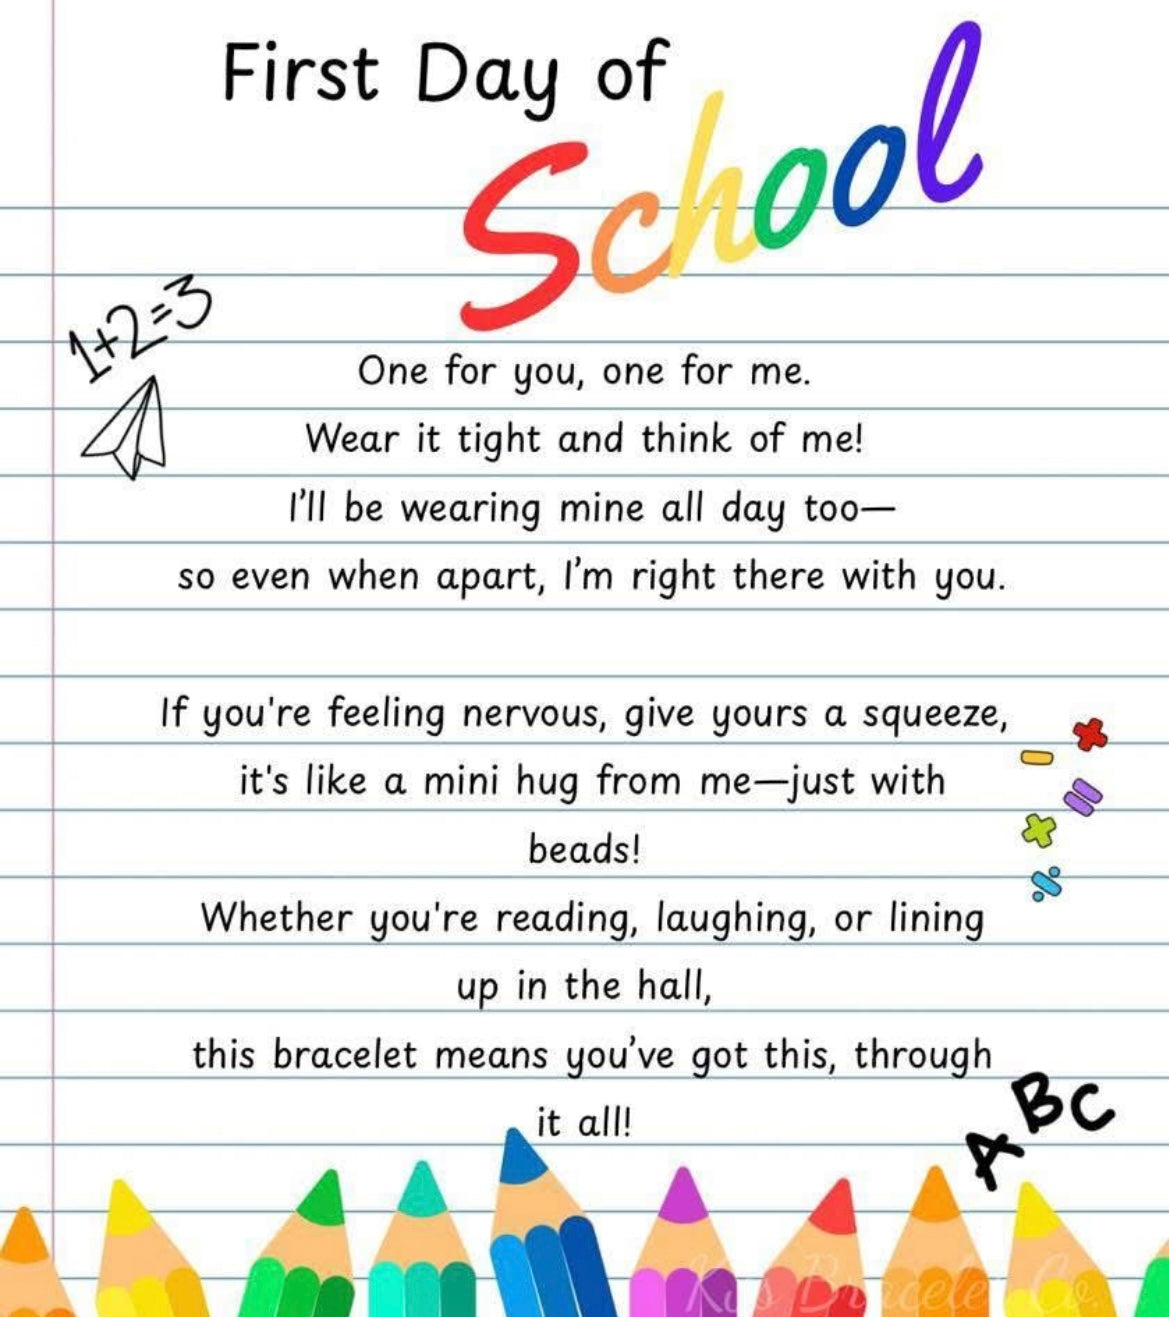 First Day of
School
1+2=3
One for you, one for me.
Wear it tight and think of me!
I'll be wearing mine all day too—
so even when apart, I'm right there with you.
If you're feeling nervous, give yours a squeeze,
it's like a mini hug from me—just with
beads!
Whether you're reading, laughing, or lining
up in the hall,
this bracelet means you've got this, through
it all!
ABC
Co.